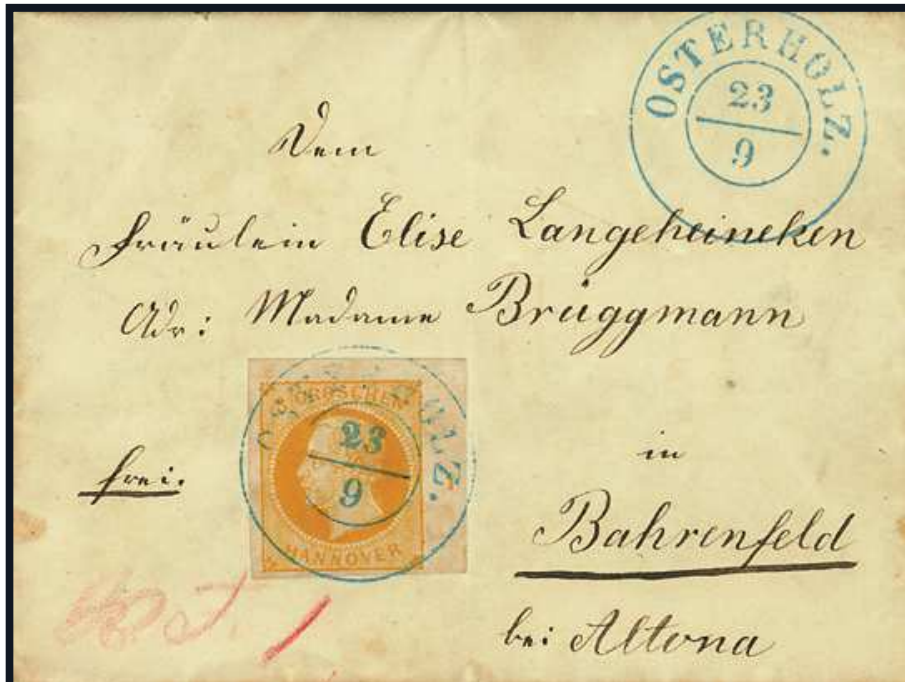 OSTERHOLZ.
23
9
Dem
Fräulein Elise Langeheineken
Adr: Madame Brüggmann
GROSCHEN
HANNOVER
OSTERHOLZ.
23
9
frei.
in
Bahrenfeld
bei Altona